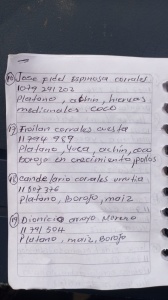 16) Jose fidel espinosa corrales
1079 291 202
Platano, achin, hiervas
medicinales coco
17) Froilan corrales cuesta
11 794 989
platano, Yuca, achin, coco
borojo en crecimiento, palos
18) candelario corrales urrutia
11 807 376
Platano, Borojo, maiz
19) Dionicio arroyo Moreno
11 791 504
Platano, maiz, Borojo